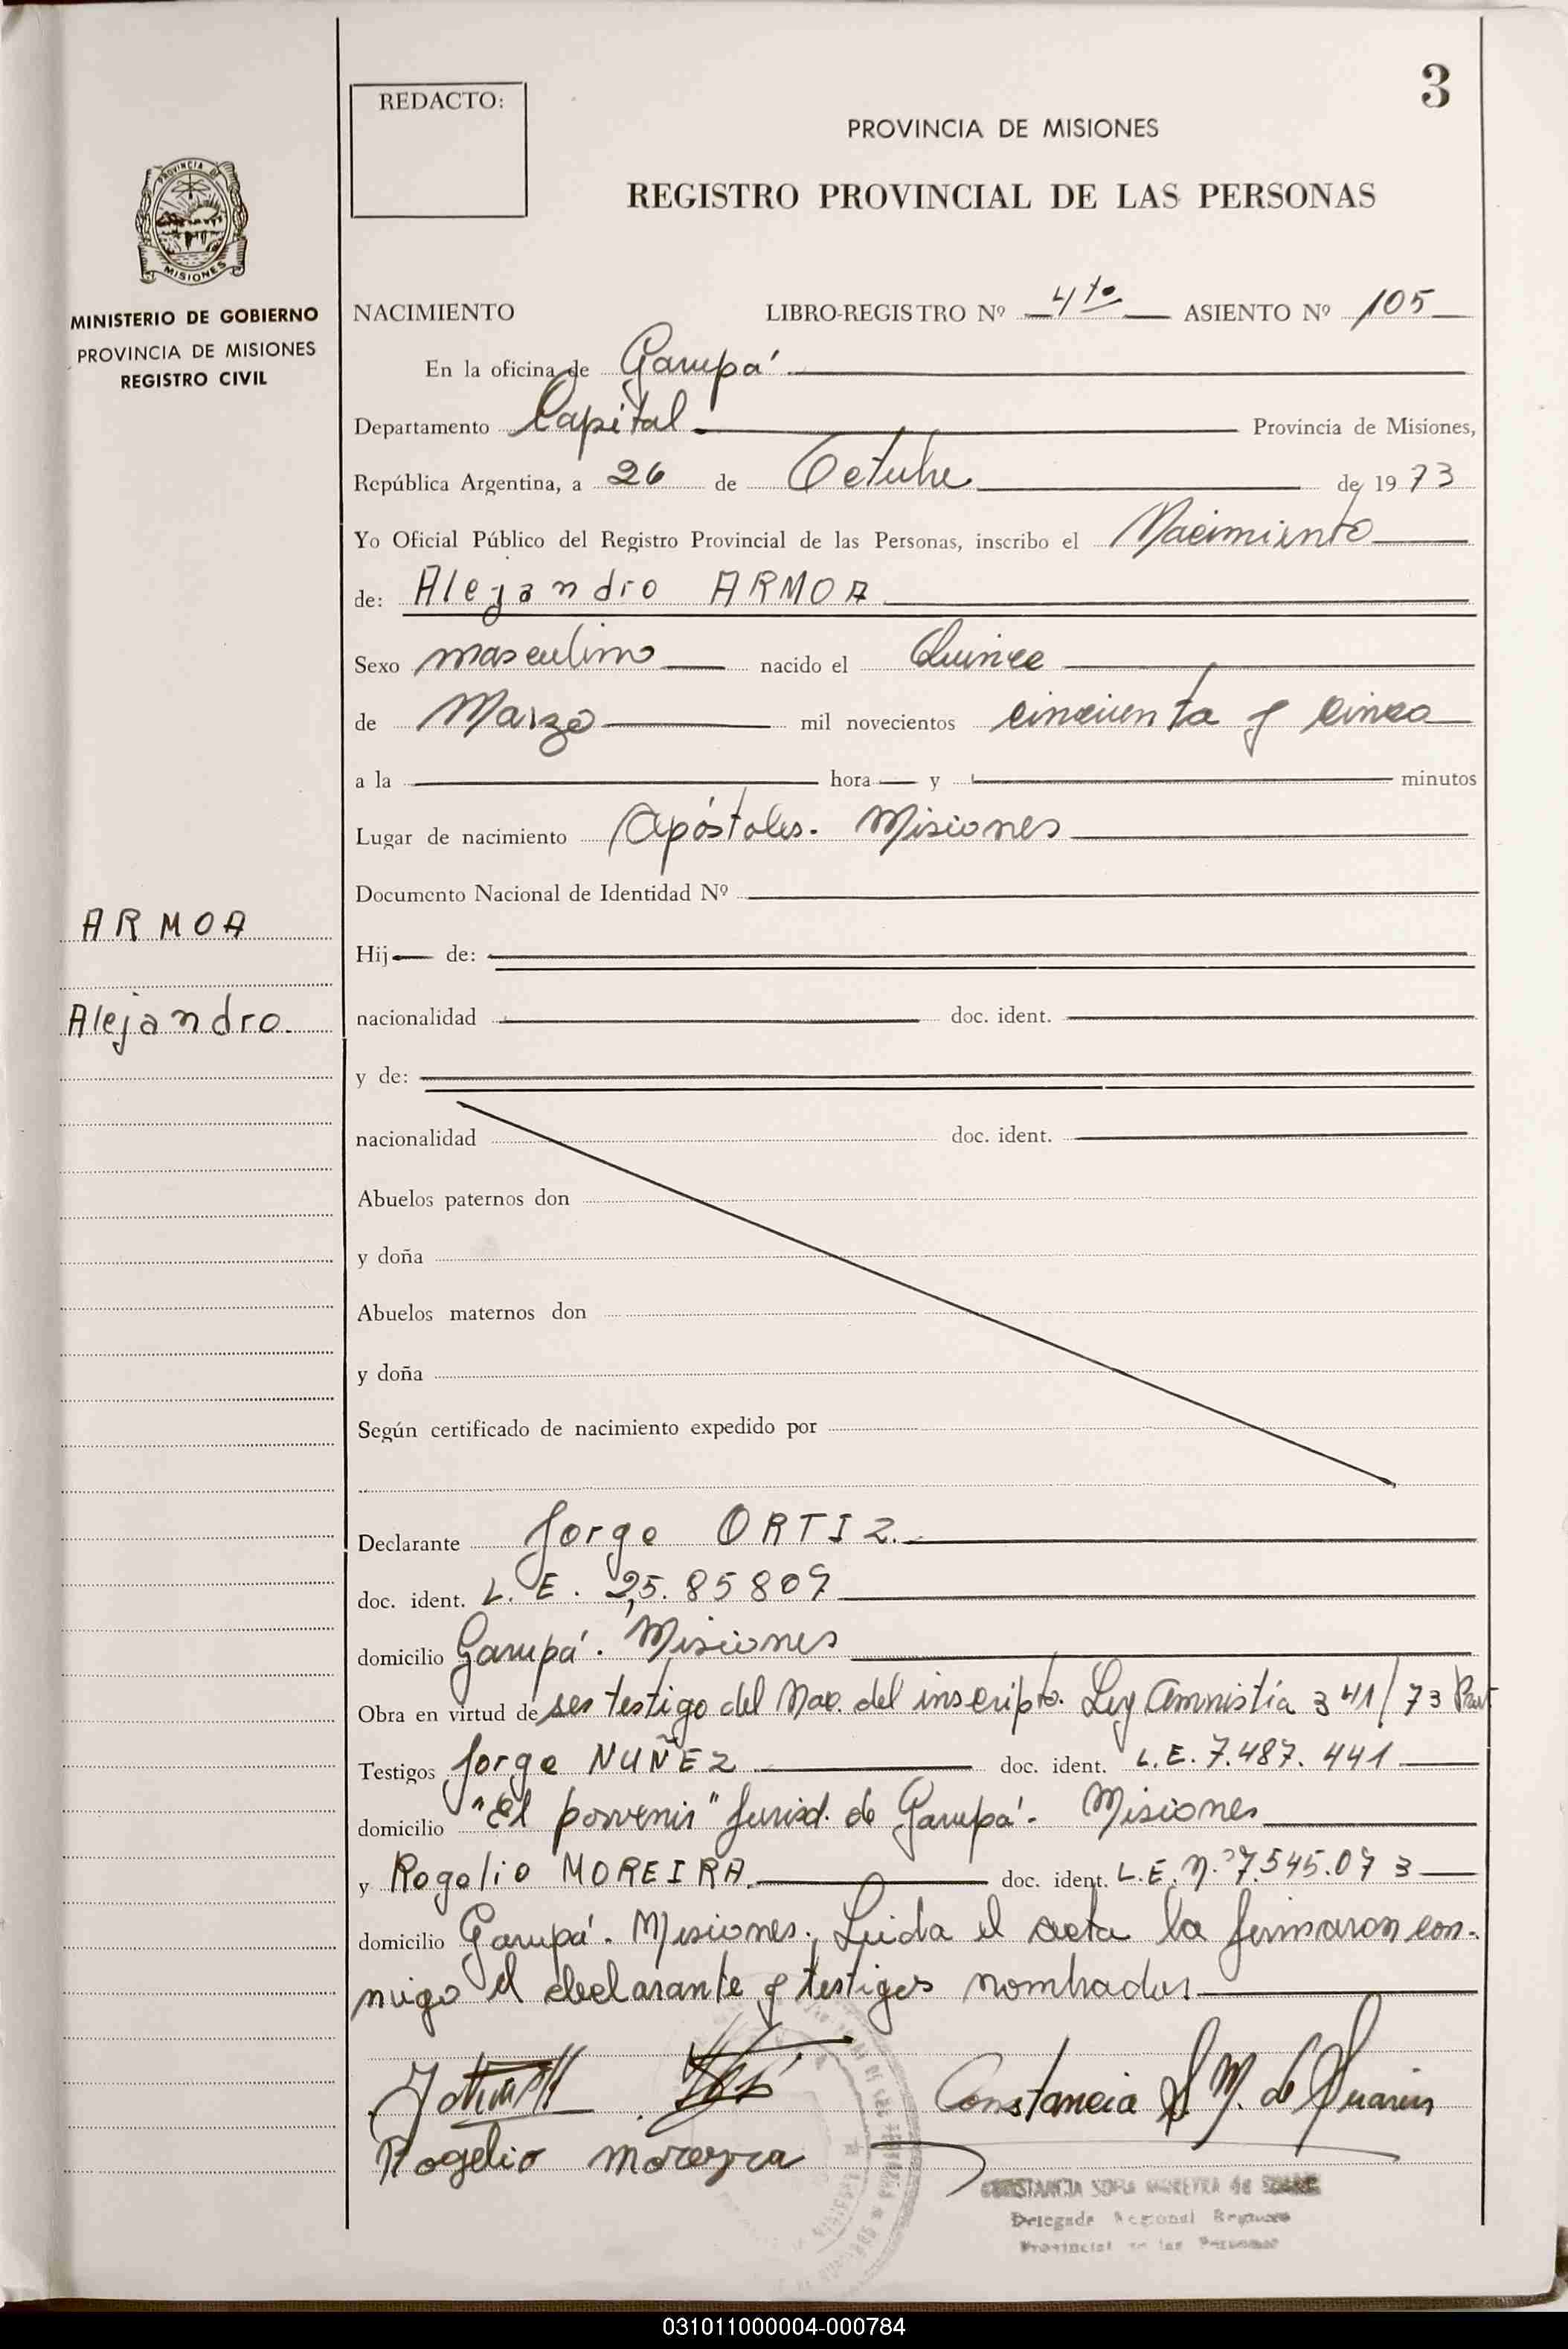 3
REDACTO:
PROVINCIA DE MISIONES
REGISTRO PROVINCIAL DE LAS PERSONAS
PROVINCIA DE
MISIONES
MINISTERIO DE GOBIERNO
PROVINCIA DE MISIONES
REGISTRO CIVIL
NACIMIENTO LIBRO-REGISTRO Nº 4to ASIENTO Nº 105
En la oficina de Garupá
Departamento Capital Provincia de Misiones,
República Argentina, a 26 de Octubre de 1973
Yo Oficial Público del Registro Provincial de las Personas, inscribo el Nacimiento
de: Alejandro ARMOA
Sexo masculino nacido el Quince
de Marzo mil novecientos cincuenta y cinco
a la hora y minutos
Lugar de nacimiento Apóstoles. Misiones
Documento Nacional de Identidad Nº
ARMOA
Hij de:
Alejandro.
nacionalidad doc. ident.
y de:
nacionalidad doc. ident.
Abuelos paternos don
y doña
Abuelos maternos don
y doña
Según certificado de nacimiento expedido por
Declarante Jorge ORTIZ.
doc. ident. L. E. 25.85809
domicilio Garupá. Misiones
Obra en virtud de ser testigo del Nac. del inscripto. Ley Amnistía 341/73
Testigos Jorge NUÑEZ doc. ident. L.E. 7.487.441
domicilio "El porvenir" Jurisd. de Garupá. Misiones
y Rogelio MOREIRA. doc. ident. L.E. N.º 7.545.073
domicilio Garupá. Misiones. Leida el acta la firmaron con-
migo el declarante y testigos nombrados
Constancia S. M. de Suarez
Rogelio moreyra
CONSTANCIA SOFIA MOREYRA de
Delegada Regional Registro
Provincial de las Personas
031011000004-000784